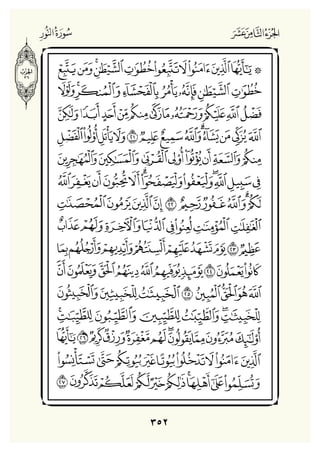 الجزء الثامن عشر
سورة النور
۞ يَٰٓأَيُّهَا ٱلَّذِينَ ءَامَنُوا۟ لَا تَتَّبِعُوا۟ خُطُوَٰتِ ٱلشَّيْطَٰنِ ۚ وَمَن يَتَّبِعْ
خُطُوَٰتِ ٱلشَّيْطَٰنِ فَإِنَّهُۥ يَأْمُرُ بِٱلْفَحْشَآءِ وَٱلْمُنكَرِ ۚ وَلَوْلَا
فَضْلُ ٱللَّهِ عَلَيْكُمْ وَرَحْمَتُهُۥ مَا زَكَىٰ مِنكُم مِّنْ أَحَدٍ أَبَدًا وَلَٰكِنَّ
ٱللَّهَ يُزَكِّى مَن يَشَآءُ ۗ وَٱللَّهُ سَمِيعٌ عَلِيمٌ ٢١ وَلَا يَأْتَلِ أُو۟لُوا۟ ٱلْفَضْلِ
مِنكُمْ وَٱلسَّعَةِ أَن يُؤْتُوٓا۟ أُو۟لِى ٱلْقُرْبَىٰ وَٱلْمَسَٰكِينَ وَٱلْمُهَٰجِرِينَ
فِى سَبِيلِ ٱللَّهِ ۖ وَلْيَعْفُوا۟ وَلْيَصْفَحُوٓا۟ ۗ أَلَا تُحِبُّونَ أَن يَغْفِرَ ٱللَّهُ
لَكُمْ ۗ وَٱللَّهُ غَفُورٌ رَّحِيمٌ ٢٢ إِنَّ ٱلَّذِينَ يَرْمُونَ ٱلْمُحْصَنَٰتِ
ٱلْغَٰفِلَٰتِ ٱلْمُؤْمِنَٰتِ لُعِنُوا۟ فِى ٱلدُّنْيَا وَٱلْءَاخِرَةِ وَلَهُمْ عَذَابٌ
عَظِيمٌ ٢٣ يَوْمَ تَشْهَدُ عَلَيْهِمْ أَلْسِنَتُهُمْ وَأَيْدِيهِمْ وَأَرْجُلُهُم بِمَا
كَانُوا۟ يَعْمَلُونَ ٢٤ يَوْمَئِذٍ يُوَفِّيهِمُ ٱللَّهُ دِينَهُمُ ٱلْحَقَّ وَيَعْلَمُونَ أَنَّ
ٱللَّهَ هُوَ ٱلْحَقُّ ٱلْمُبِينُ ٢٥ ٱلْخَبِيثَٰتُ لِلْخَبِيثِينَ وَٱلْخَبِيثُونَ
لِلْخَبِيثَٰتِ ۖ وَٱلطَّيِّبَٰتُ لِلطَّيِّبِينَ وَٱلطَّيِّبُونَ لِلطَّيِّبَٰتِ ۚ
أُو۟لَٰٓئِكَ مُبَرَّءُونَ مِمَّا يَقُولُونَ ۖ لَهُم مَّغْفِرَةٌ وَرِزْقٌ كَرِيمٌ ٢٦ يَٰٓأَيُّهَا
ٱلَّذِينَ ءَامَنُوا۟ لَا تَدْخُلُوا۟ بُيُوتًا غَيْرَ بُيُوتِكُمْ حَتَّىٰ تَسْتَأْنِسُوا۟
وَتُسَلِّمُوا۟ عَلَىٰٓ أَهْلِهَا ۚ ذَٰلِكُمْ خَيْرٌ لَّكُمْ لَعَلَّكُمْ تَذَكَّرُونَ ٢٧
٣٥٢